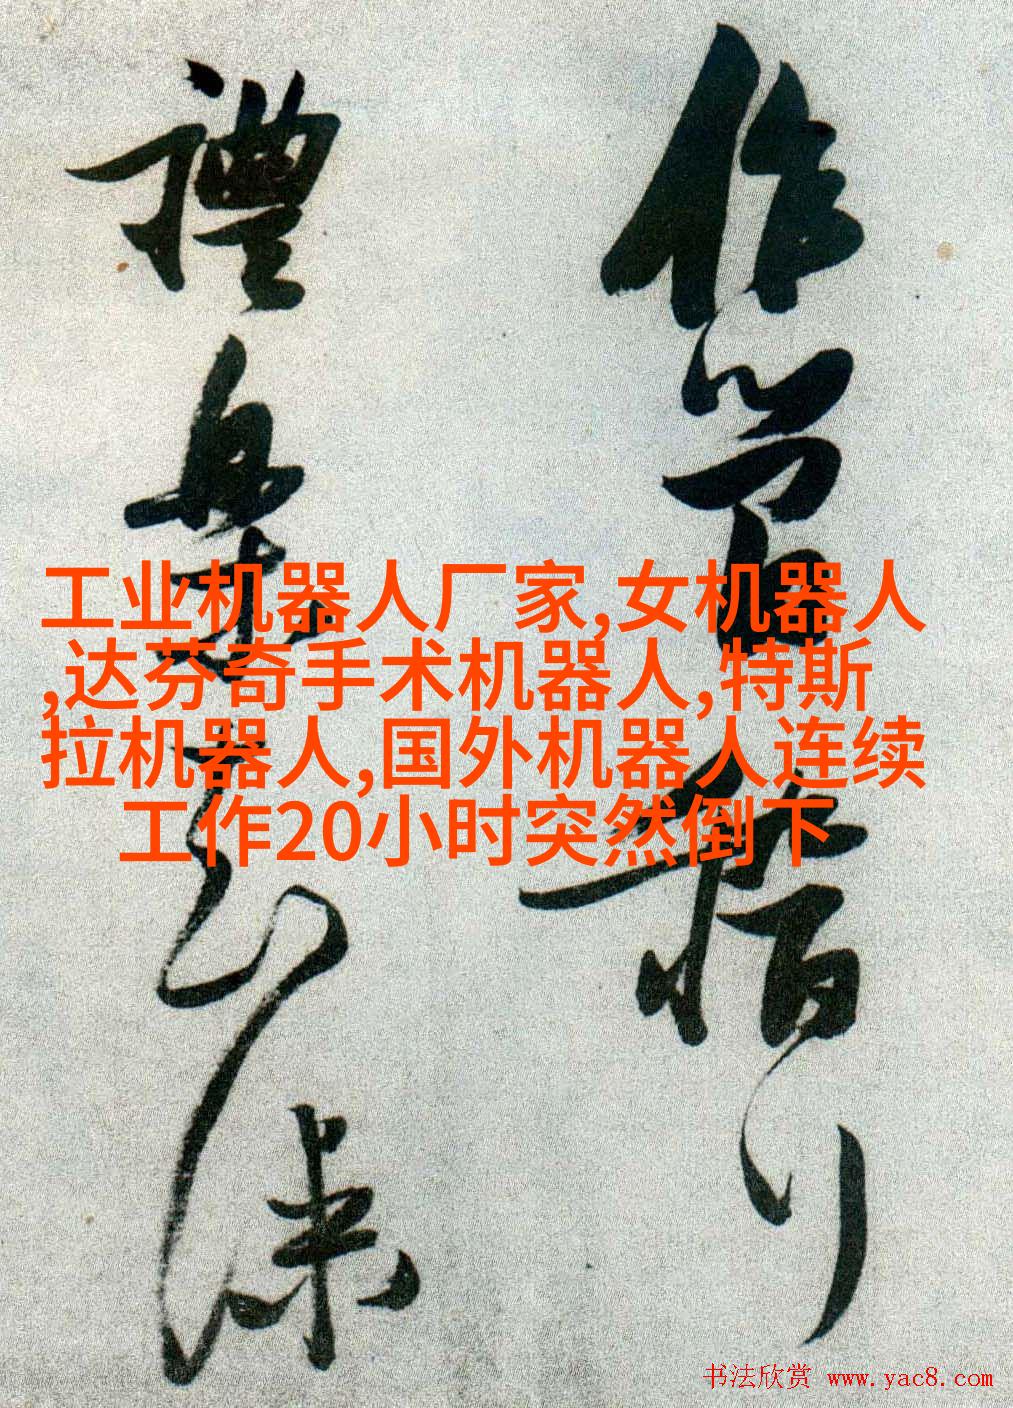 作
禮樂
工业机器人厂家,女机器人
,达芬奇手术机器人,特斯
拉机器人,国外机器人连续
工作20小时突然倒下
书法欣赏 www.yac8.com